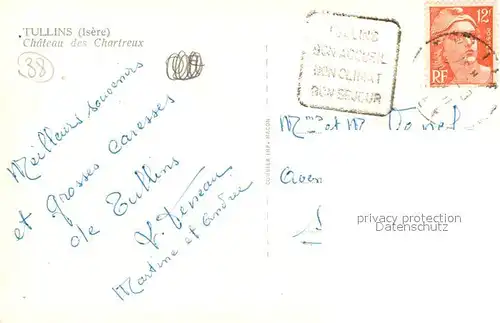 TULLINS (Isère)
Château des Chartreux
38
Meilleurs souvenirs
et grosses caresses
de Tullins
Martine et Andrée
TULLINS
BON ACCUEIL
BON CLIMAT
BON SEJOUR
12F
RF
Mme et M
privacy protection
Datenschutz